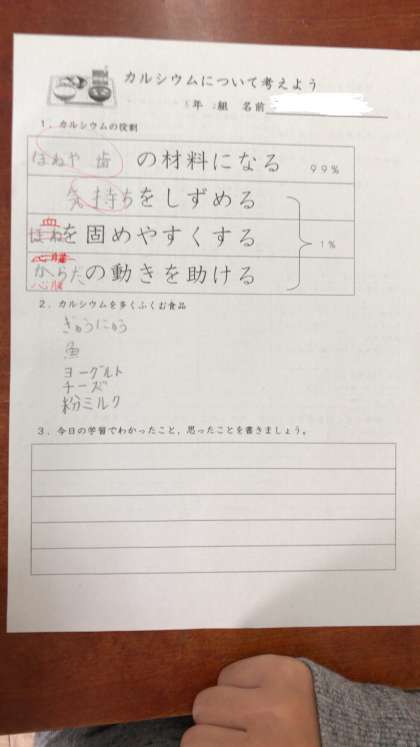 カルシウムについて考えよう
5年 2組 名前
1．カルシウムの役割
ほねや 歯 の材料になる 99％
気持ちをしずめる
血
ほねを固めやすくする 1％
心臓
からだの動きを助ける
心臓
2．カルシウムを多くふくむ食品
ぎゅうにゅう
魚
ヨーグルト
チーズ
粉ミルク
3．今日の学習でわかったこと，思ったことを書きましょう。